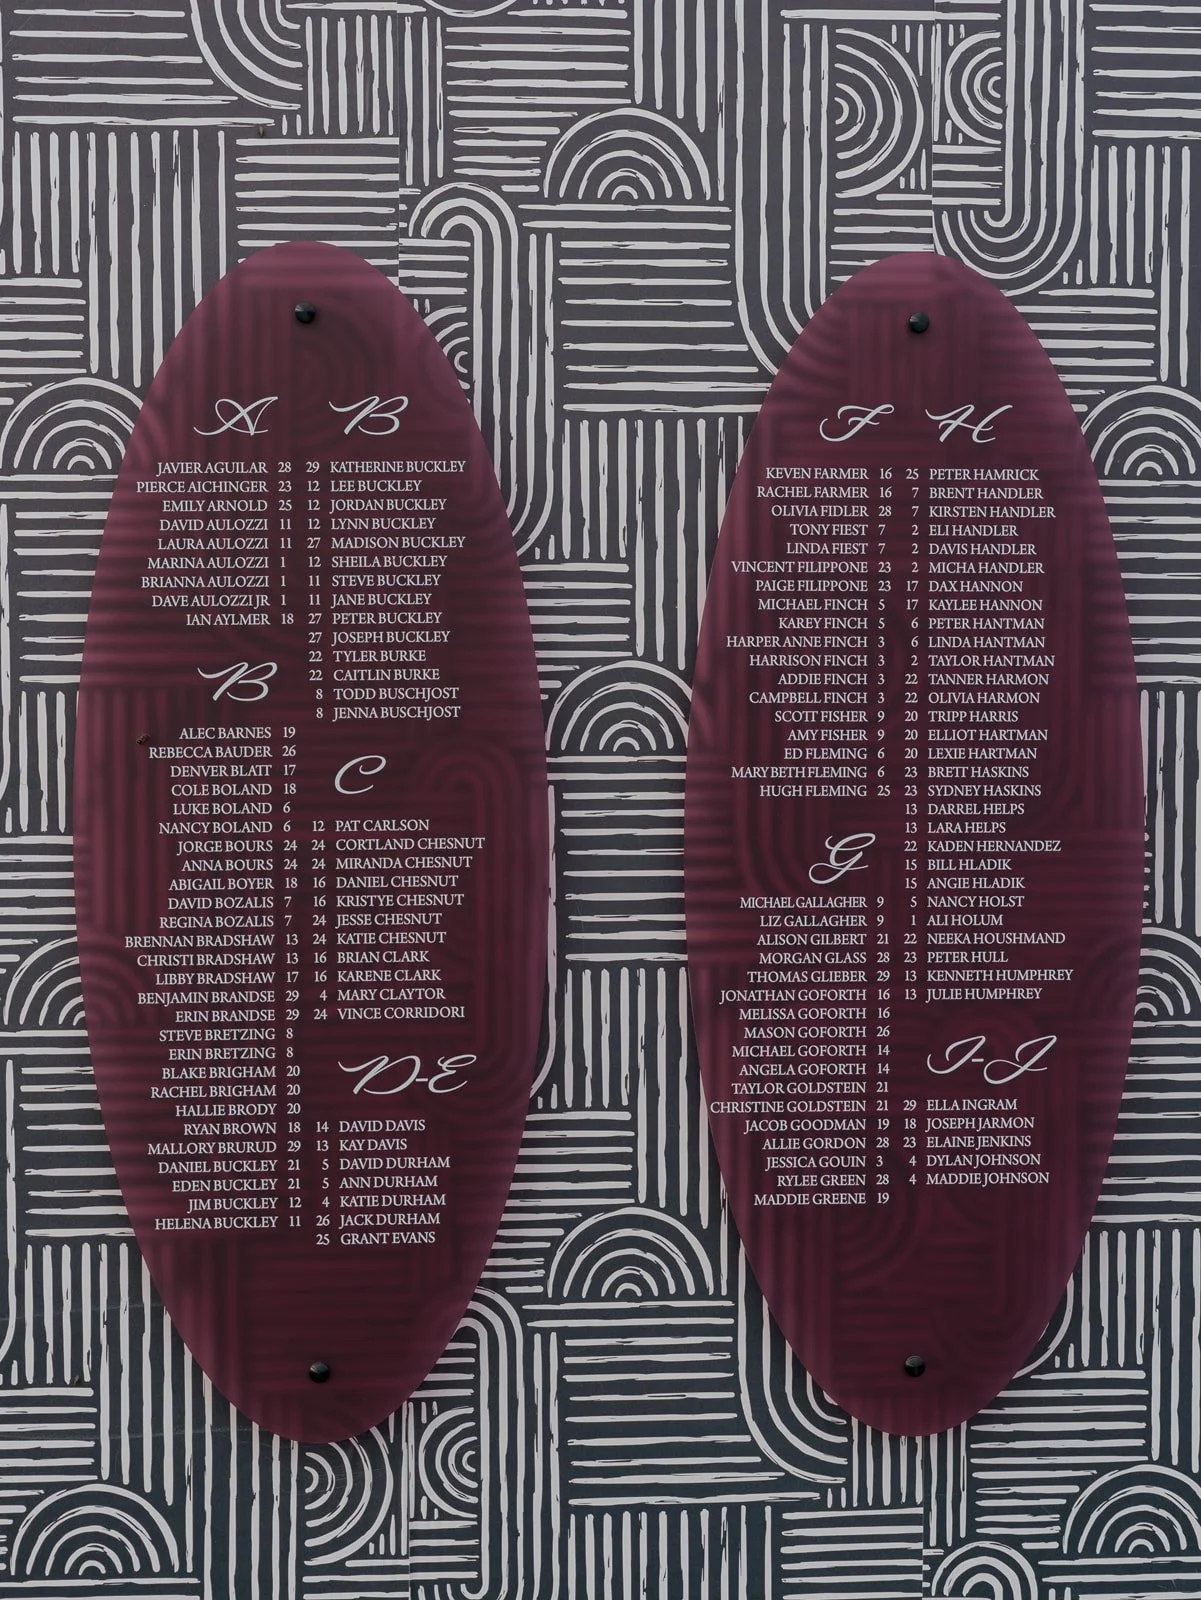 A
JAVIER AGUILAR 28
PIERCE AICHINGER 23
EMILY ARNOLD 25
DAVID AULOZZI 11
LAURA AULOZZI 11
MARINA AULOZZI 1
BRIANNA AULOZZI 1
DAVE AULOZZI JR 1
IAN AYLMER 18
B
ALEC BARNES 19
REBECCA BAUDER 26
DENVER BLATT 17
COLE BOLAND 18
LUKE BOLAND 6
NANCY BOLAND 6
JORGE BOURS 24
ANNA BOURS 24
ABIGAIL BOYER 18
DAVID BOZALIS 7
REGINA BOZALIS 7
BRENNAN BRADSHAW 13
CHRISTI BRADSHAW 13
LIBBY BRADSHAW 17
BENJAMIN BRANDSE 29
ERIN BRANDSE 29
STEVE BRETZING 8
ERIN BRETZING 8
BLAKE BRIGHAM 20
RACHEL BRIGHAM 20
HALLIE BRODY 20
RYAN BROWN 18
MALLORY BRURUD 29
DANIEL BUCKLEY 21
EDEN BUCKLEY 21
JIM BUCKLEY 12
HELENA BUCKLEY 11
B
29 KATHERINE BUCKLEY
12 LEE BUCKLEY
12 JORDAN BUCKLEY
12 LYNN BUCKLEY
27 MADISON BUCKLEY
12 SHEILA BUCKLEY
11 STEVE BUCKLEY
11 JANE BUCKLEY
27 PETER BUCKLEY
27 JOSEPH BUCKLEY
22 TYLER BURKE
22 CAITLIN BURKE
8 TODD BUSCHJOST
8 JENNA BUSCHJOST
C
12 PAT CARLSON
24 CORTLAND CHESNUT
24 MIRANDA CHESNUT
16 DANIEL CHESNUT
16 KRISTYE CHESNUT
24 JESSE CHESNUT
24 KATIE CHESNUT
16 BRIAN CLARK
16 KARENE CLARK
4 MARY CLAYTOR
24 VINCE CORRIDORI
D-E
14 DAVID DAVIS
13 KAY DAVIS
5 DAVID DURHAM
5 ANN DURHAM
4 KATIE DURHAM
26 JACK DURHAM
25 GRANT EVANS
F
KEVEN FARMER 16
RACHEL FARMER 16
OLIVIA FIDLER 28
TONY FIEST 7
LINDA FIEST 7
VINCENT FILIPPONE 23
PAIGE FILIPPONE 23
MICHAEL FINCH 5
KAREY FINCH 5
HARPER ANNE FINCH 3
HARRISON FINCH 3
ADDIE FINCH 3
CAMPBELL FINCH 3
SCOTT FISHER 9
AMY FISHER 9
ED FLEMING 6
MARY BETH FLEMING 6
HUGH FLEMING 25
G
MICHAEL GALLAGHER 9
LIZ GALLAGHER 9
ALISON GILBERT 21
MORGAN GLASS 28
THOMAS GLIEBER 29
JONATHAN GOFORTH 16
MELISSA GOFORTH 16
MASON GOFORTH 26
MICHAEL GOFORTH 14
ANGELA GOFORTH 14
TAYLOR GOLDSTEIN 21
CHRISTINE GOLDSTEIN 21
JACOB GOODMAN 19
ALLIE GORDON 28
JESSICA GOUIN 3
RYLEE GREEN 28
MADDIE GREENE 19
H
25 PETER HAMRICK
7 BRENT HANDLER
7 KIRSTEN HANDLER
2 ELI HANDLER
2 DAVIS HANDLER
2 MICHA HANDLER
17 DAX HANNON
17 KAYLEE HANNON
6 PETER HANTMAN
6 LINDA HANTMAN
2 TAYLOR HANTMAN
22 TANNER HARMON
22 OLIVIA HARMON
20 TRIPP HARRIS
20 ELLIOT HARTMAN
20 LEXIE HARTMAN
23 BRETT HASKINS
23 SYDNEY HASKINS
13 DARREL HELPS
13 LARA HELPS
22 KADEN HERNANDEZ
15 BILL HLADIK
15 ANGIE HLADIK
5 NANCY HOLST
1 ALI HOLUM
22 NEEKA HOUSHMAND
23 PETER HULL
13 KENNETH HUMPHREY
13 JULIE HUMPHREY
I-J
29 ELLA INGRAM
18 JOSEPH JARMON
23 ELAINE JENKINS
4 DYLAN JOHNSON
4 MADDIE JOHNSON